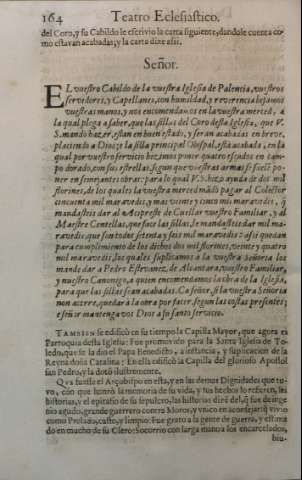 164 Teatro Eclesiastico.
del Coro, y su Cabildo le escrivio la carta siguiente, dandole cuenta co-
mo estavan acabadas; y la carta dize assi.
Señor.
EL vuestro Cabildo de la vuestra Iglesia de Palencia, vuestros
servidores, y Capellanes, con humildad, y reverencia besamos
vuestras manos, y nos encomendamos en la vuestra merced, a
la qual plega a saber, que las sillas del Coro desta Iglesia, que V.
S. mandò hazer, estan en buen estado, y seran acabadas en breve,
placiendo a Dios; e la silla principal Obispal, està acabada, en la
qual por vuestro servicio hezimos poner quatro escudos en cam-
po dorado, con sus estrellas, segun que vuestras armas
ner en semejantes obras: para lo qual V.S. hizo ayuda de dos mil
florines, de los quales la vuestra merced mãdò pagar al Colector
cincuenta mil maravedis, y mas veinte y cinco mil maravedis, q̃
mandasteis dar al Arcipreste de Cuellar vuestro Familiar, y al
Maestre Centellas, que face las sillas, le mandasteis dar mil ma-
ravedis, que son todos setenta y seis mil maravedis: assi quedan
para cumplimiento de los dichos dos mil florines, veinte y quatro
mil maravedis, los quales suplicamos à la vuestra Señoria los
mande dar a Pedro Estevanez, de Alcantara, vuestro Familiar,
y nuestro Canonigo, a quien encomendamos la obra de la Iglesia,
para que las sillas sean acabadas. Ca Señor, si la vuestra Señoria
non acorre, quedar à la obra por facer, segun las costas presentes;
e señor mantengavos Dios a su santo servicio.
TAMBIEN se edificò en su tiempo la Capilla Mayor, que agora es
Parroquia desta Iglesia: Fue promovido para la Santa Iglesia de To-
ledo, que se la dio el Papa Benedicto, a instancia, y suplicacion de la
Reyna doña Catalina: En ella edificò la Capilla del glorioso Apostol
san Pedro, y la dotò ilustremente.
QUE fuesse el Arçobispo en esta, y en las demas Dignidades que tu-
vo, con que honrò la memoria de su vida, y sus hechos lo refieren, las
historias, y el epitafio de su sepulcro, las historias dizẽ del, q̃ fue de inge
nio agudo, grande guerrero contra Moros, y unico en aconsejar: q̃ vivio
como Prelado, casto, y limpio: Fue grato a la gente de guerra, y estima
do en mucho de su Clero: Socorrio con larga mano a los encarcelados,
biu-